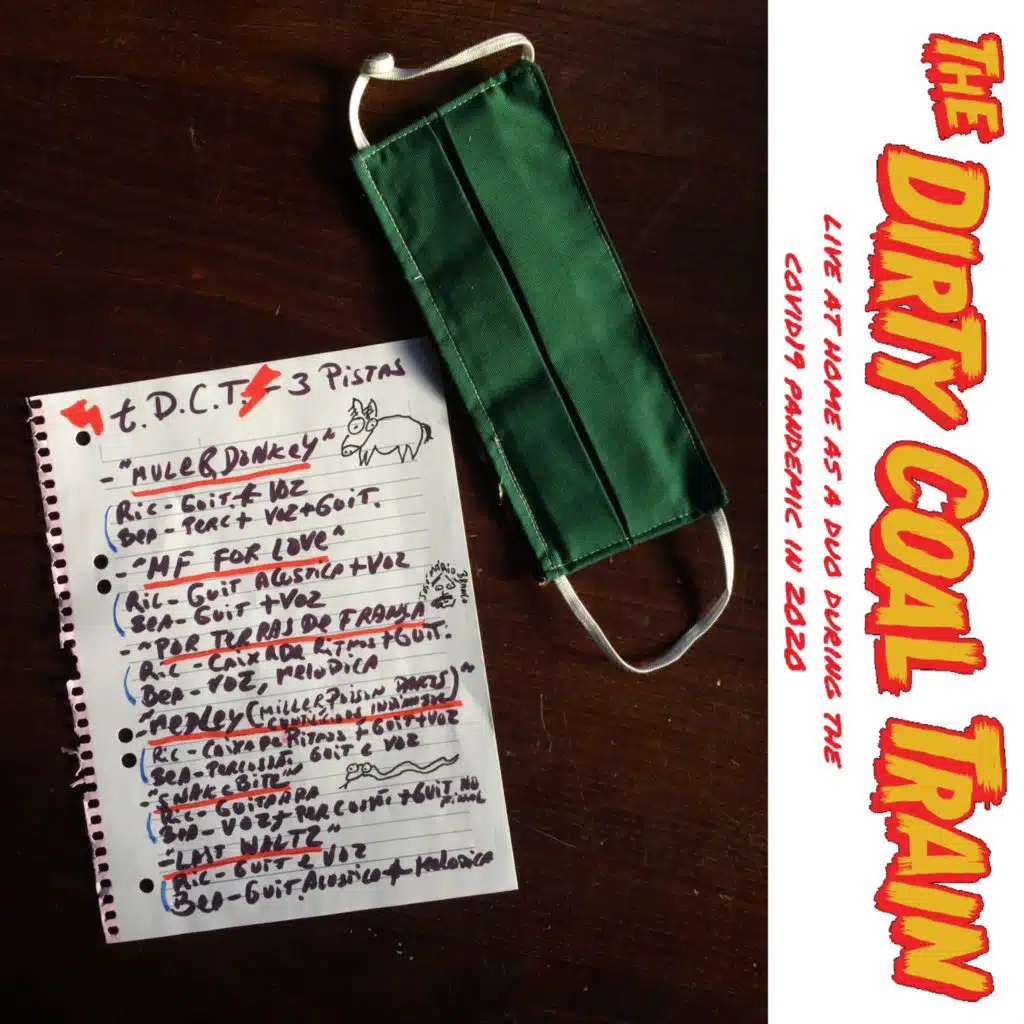 t. D.C.T. - 3 PISTAS
- "MULE & DONKEY"
RIC - GUIT. + VOZ
BEA - PERC + VOZ + GUIT.
- "MF FOR LOVE"
RIC - GUIT ACUSTICA + VOZ
BEA - GUIT + VOZ
- "POR TERRAS DE FRANÇA"
RIC - CAIXA DE RITMOS + GUIT.
BEA - VOZ, MELODICA
- "MEDLEY (MILLER POISON PARTS)
RIC - CAIXA DE RITMOS + GUIT + VOZ
BEA - PERCUSSÃO GUIT E VOZ
- "SNAKE BITE"
RIC - GUITARRA
BEA - VOZ + PERCUSSÃO + GUIT NO FINAL
- "LAST WALTZ"
RIC - GUIT E VOZ
BEA - GUIT. ACUSTICA + MELODICA
THE DIRTY COAL TRAIN
LIVE AT HOME AS A DUO DURING THE
COVID19 PANDEMIC IN 2020